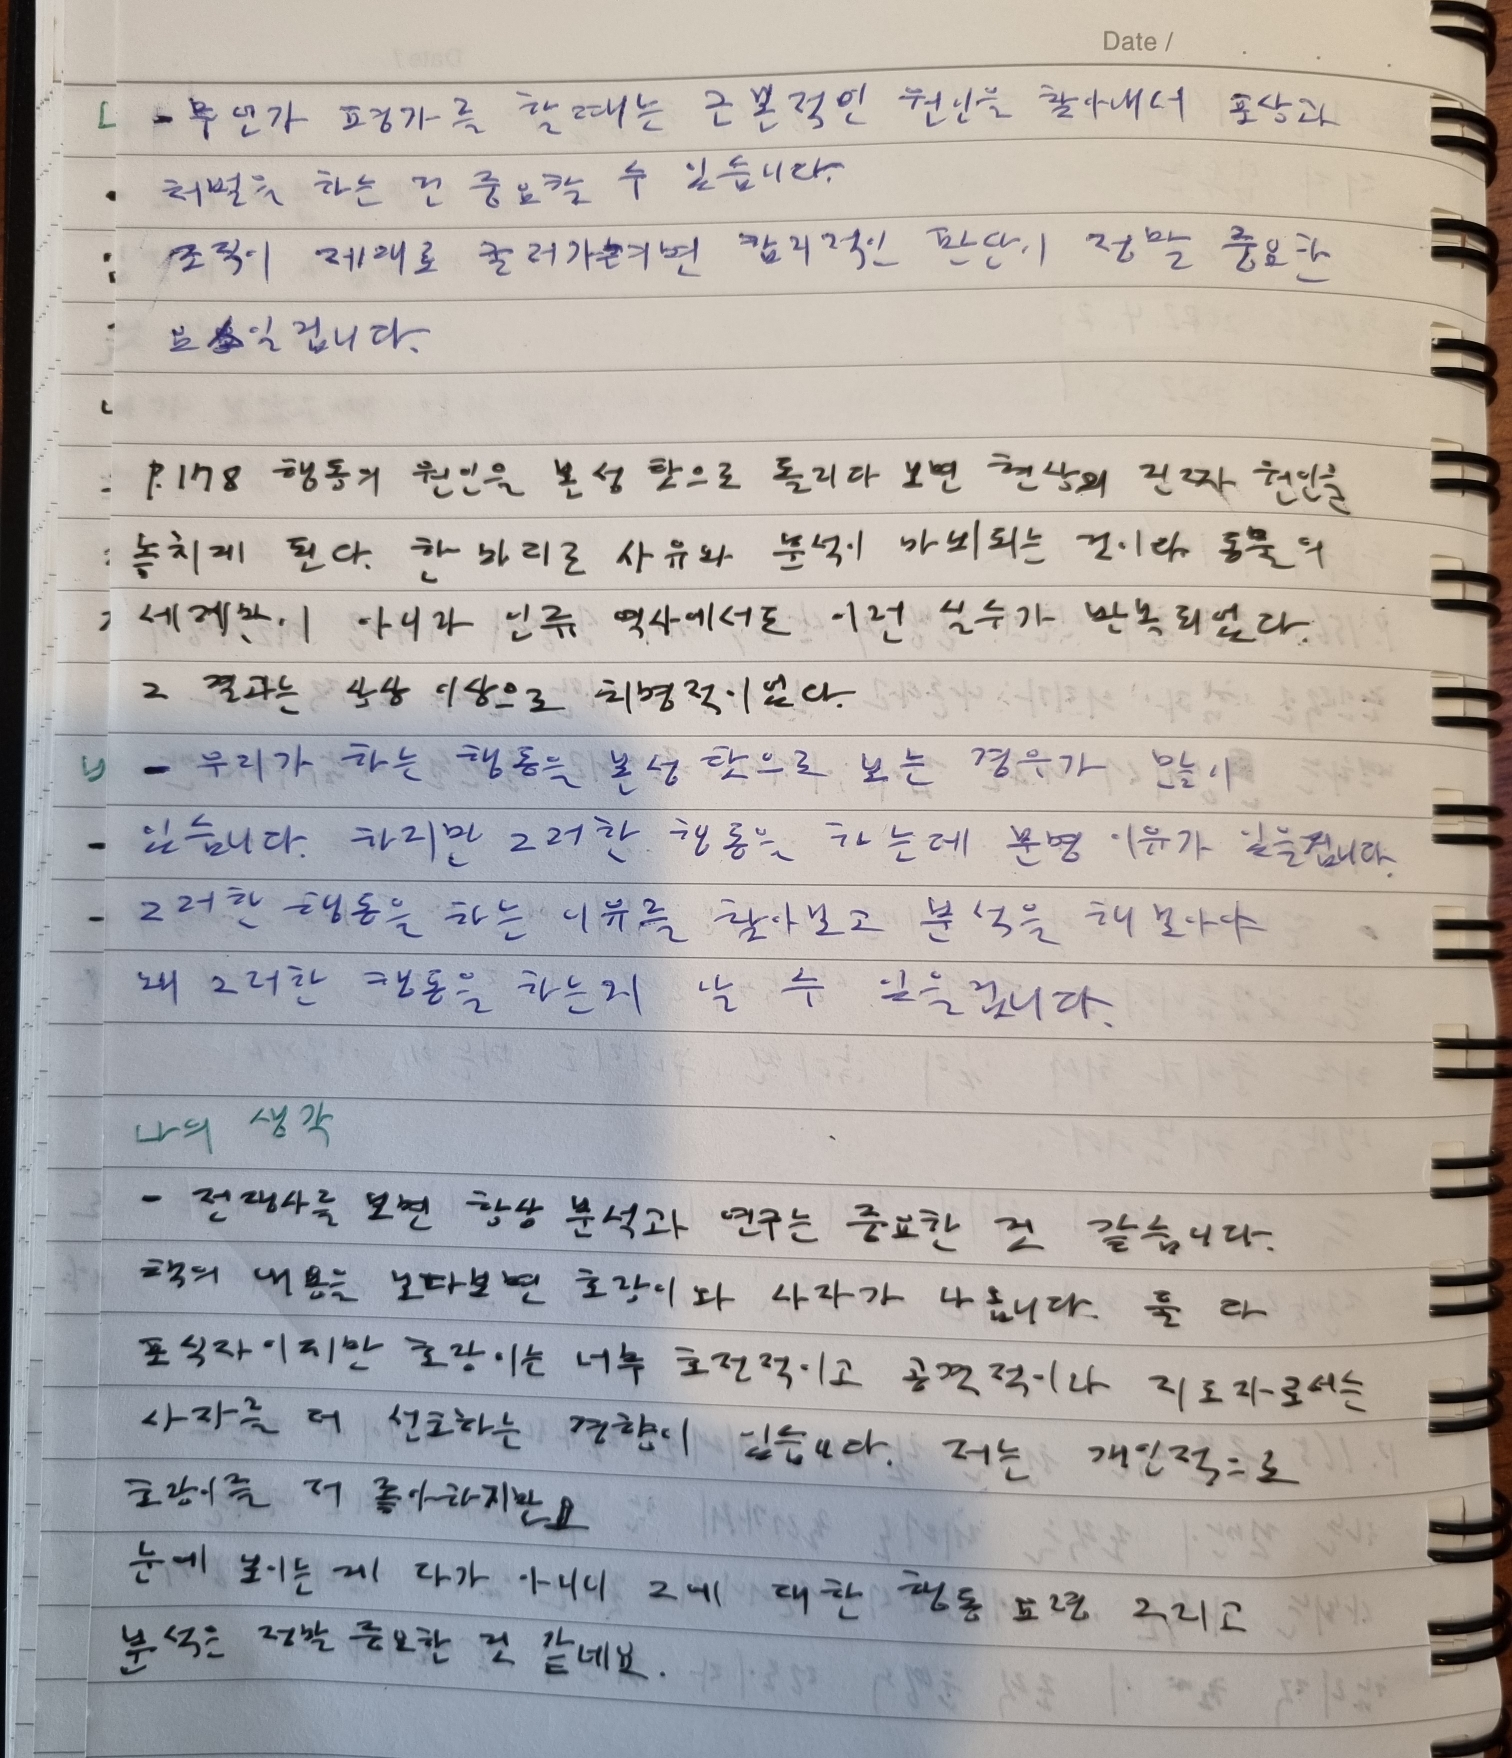 Date /
- 무언가 평가를 할때는 근본적인 원인을 찾아내서 포상과
처벌을 하는 건 중요할 수 있습니다.
조직이 제대로 굴러가려면 합리적인 판단이 정말 중요한
일겁니다.
P.178 행동의 원인을 본성 탓으로 돌리다 보면 현상의 진짜 원인을
놓치게 된다. 한 마디로 사유와 분석이 마비되는 것이다. 동물의
세계만이 아니라 인류 역사에서도 이런 실수가 반복되었다.
그 결과는 상상 이상으로 치명적이었다.
- 우리가 하는 행동을 본성 탓으로 보는 경우가 많이
있습니다. 하지만 그러한 행동을 하는데 분명 이유가 있을겁니다.
그러한 행동을 하는 이유를 찾아보고 분석을 해 보아야
왜 그러한 행동을 하는지 알 수 있을겁니다.
나의 생각
- 전쟁사를 보면 항상 분석과 연구는 중요한 것 같습니다.
책의 내용을 보다보면 호랑이와 사자가 나옵니다. 둘 다
포식자이지만 호랑이는 너무 호전적이고 공격적이나 지도자로서는
사자를 더 선호하는 경향이 있습니다. 저는 개인적으로
호랑이를 더 좋아하지만요
눈에 보이는 게 다가 아니니 그에 대한 행동 요령 그리고
분석은 정말 중요한 것 같네요.